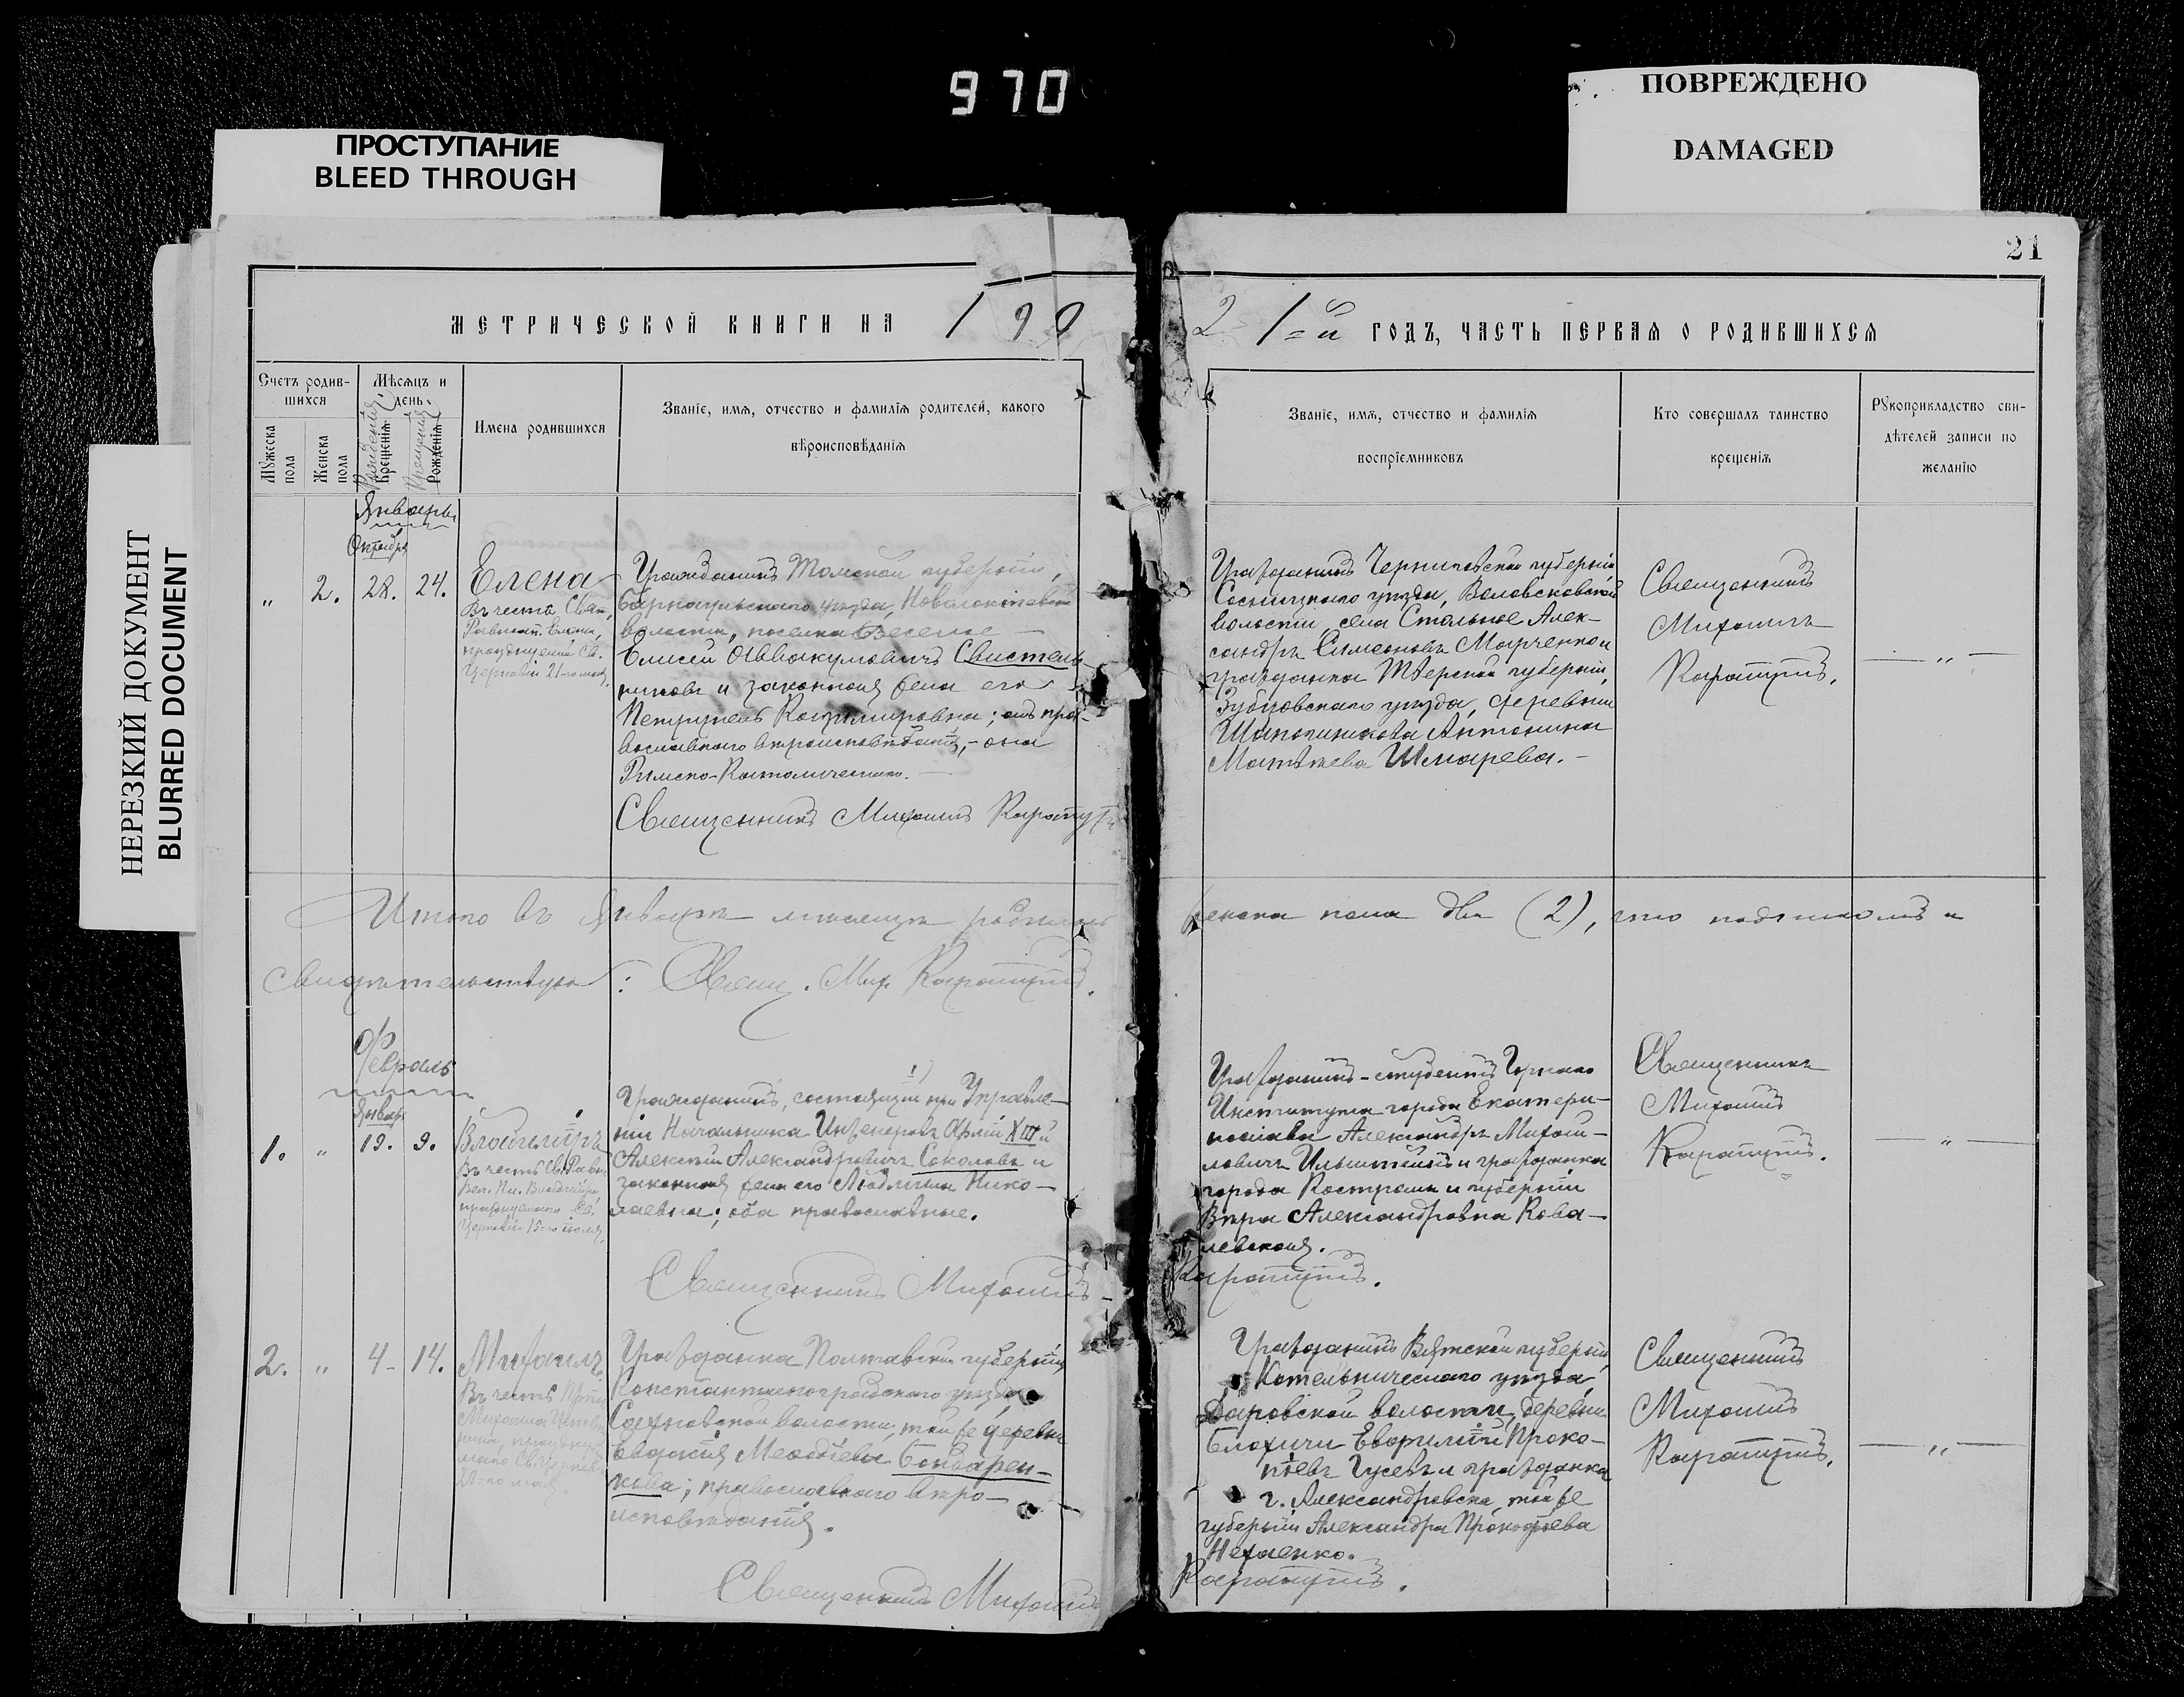 970
ПРОСТУПАНИЕ
BLEED THROUGH
ПОВРЕЖДЕНО
DAMAGED
НЕРЕЗКИЙ ДОКУМЕНТ
BLURRED DOCUMENT
21
МЕТРИЧЕСКОЙ КНИГИ НА 192 1=й ГОДЪ, ЧАСТЬ ПЕРВАЯ О РОДИВШИХСЯ
Счетъ родив-
шихся
Мужеска пола
Женска пола
Мѣсяцъ и
день.
Рожденія
Крещенія
Крещенія
Рожденія
Имена родившихся
Званіе, имя, отчество и фамилія родителей, какого
вѣроисповѣданія
Званіе, имя, отчество и фамилія
воспріемниковъ
Кто совершалъ таинство
крещенія
Рукоприкладство сви-
дѣтелей записи по
желанію
Январь
Октября
„ 2. 28. 24.
Елена
Въ честь Свят.
Равноап. Елены,
празднуемой Св.
Церковію 21-го мая.
Гражданинъ Томской губерніи,
Барнаульскаго уѣзда,
волости, поселка Веселое
Елисей Аввакумовичъ Свистель-
никовъ и законная жена его
Казимировна; онъ пра-
вославнаго вѣроисповѣданія, - она
Римско-Католическаго.
Священникъ Михаилъ
Гражданинъ Черниговской губерніи
Сосницкаго уѣзда, Волосковской
волости, села Стольное Алек-
сандръ Симеоновъ Марченко и
гражданка Тверской губерніи,
Зубцовскаго уѣзда, деревни
Антонина
Матѳѣева Шмарева. -
Священникъ
Михаилъ
— „ —
Итого въ Январѣ мѣсяцѣ родилось
женска пола два (2), что подписомъ и
свидѣтельствую: Свящ. Мих.
Февраль
Январ.
1. „ 19. 9.
Владиміръ
Въ честь Св. Равн.
Вел. Кн. Владиміра,
празднуемаго Св.
Церковію 15-го іюля.
Гражданинъ, состоящій при Управле-
ніи Начальника Инженеровъ Арміи XIII й
Алексѣй Александровичъ Соколовъ и
законная жена его Людмила Нико-
лаевна; оба православные.
Священникъ Михаилъ
Гражданинъ - студентъ Горнаго
Института города Екатери-
нослава Александръ Михаи-
ловичъ и гражданка
города Костромы и губерніи
Вѣра Александровна Кова-
левская.
Священникъ
Михаилъ
— „ —
2. „ 4- 14.
Михаилъ
Въ честь
Михаила
Гражданка Полтавской губерніи,
Константиноградскаго уѣзда,
волости, той же деревни
Евдокія Меѳодіева Бондарен-
кова; православнаго вѣро-
исповѣданія.
Священникъ Михаилъ
Гражданинъ Вятской губерніи,
Котельническаго уѣзда,
Даровской волости, деревни
Блохичи Проко-
піевъ Гусевъ и гражданка
г. Александровска, той же
губерніи Александра Прокофіева
Нехаенко.
Священникъ
Михаилъ
— „ —